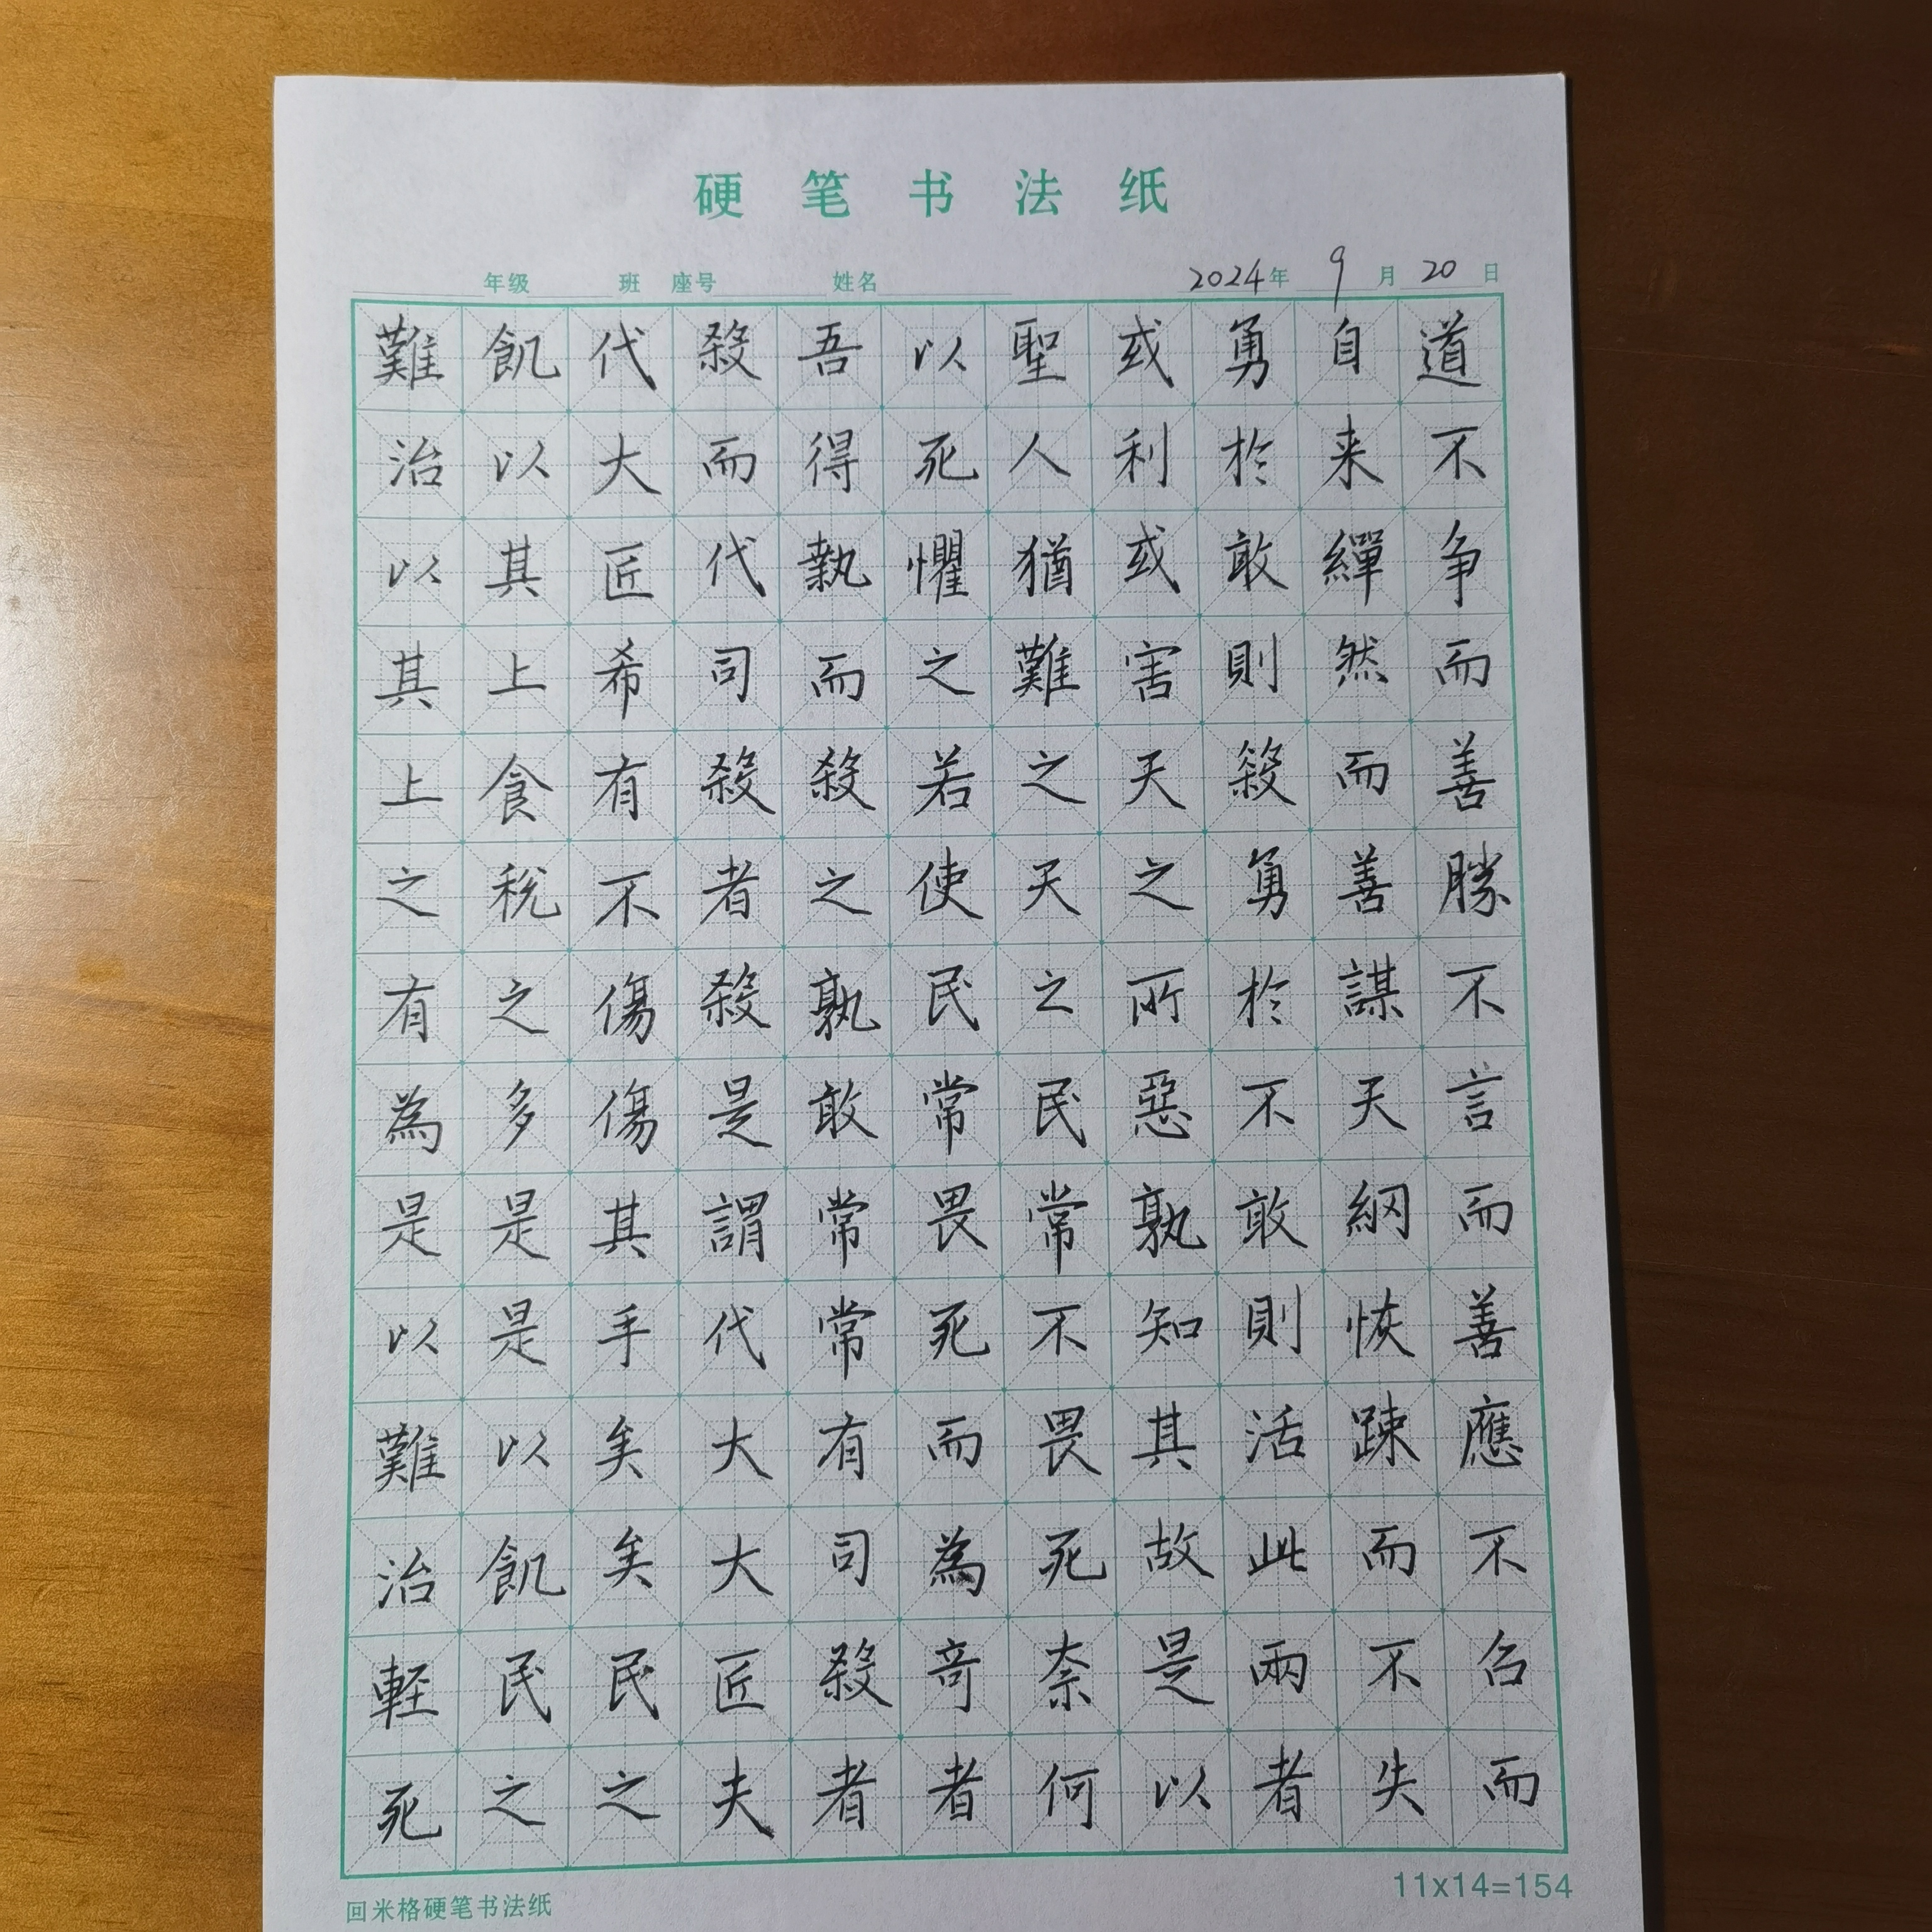 硬笔书法纸
年级 班 座号 姓名 2024年 9月 20日
道不争而善勝不言而善應不召而
自来繟然而善謀天網恢踈而不失
勇於敢則殺勇於不敢則活此兩者
或利或害天之所惡孰知其故是以
聖人猶難之天之民常不畏死奈何
以死懼之若使民常畏死而為奇者
吾得執而殺之孰敢常常有司殺者
殺而代司殺者殺是謂代大大匠夫
代大匠希有不傷傷其手矣矣民之
飢以其上食税之多是是以飢民之
難治以其上之有為是以難治軽死
回米格硬笔书法纸
11x14=154